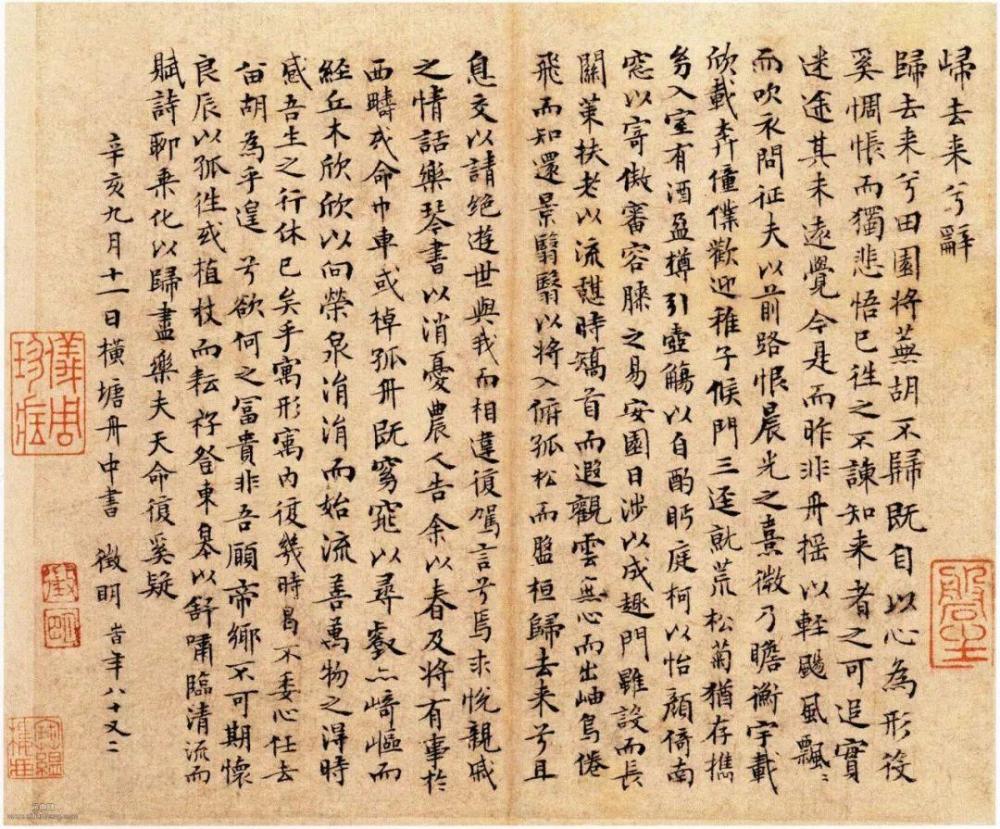 歸去来兮辭
歸去来兮田園将蕪胡不歸既自以心為形役
奚惆悵而獨悲悟已徃之不諫知来者之可追實
迷途其未遠覺今是而昨非舟摇以輕颺風飄〻
而吹衣問征夫以前路恨晨光之熹微乃瞻衡宇載
欣載奔僮僕歡迎稚子候門三迳就荒松菊猶存攜
幼入室有酒盈樽引壺觴以自酌眄庭柯以怡顏倚南
窓以寄傲審容膝之易安園日涉以成趣門雖設而長
關策扶老以流憩時矯首而遐觀雲無心而出岫鳥倦
飛而知還景翳翳以将入俯孤松而盤桓歸去来兮且
息交以請絶遊世與我而相違復駕言兮焉求悅親戚
之情話樂琴書以消憂農人告余以春及将有事於
西疇或命巾車或棹孤舟既窈窕以尋壑亦崎嶇而
經丘木欣欣以向榮泉涓涓而始流善萬物之得時
感吾生之行休已矣乎寓形寓内復幾時曷不委心任去
留胡為乎遑 兮欲何之冨貴非吾願帝鄉不可期懷
良辰以孤徃或植杖而耘耔登東皋以舒嘯臨清流而
賦詩聊乗化以歸盡樂夫天命復奚疑
辛亥九月十一日橫塘舟中書 徵明 旹年八十又二
徵明
儀周珍藏